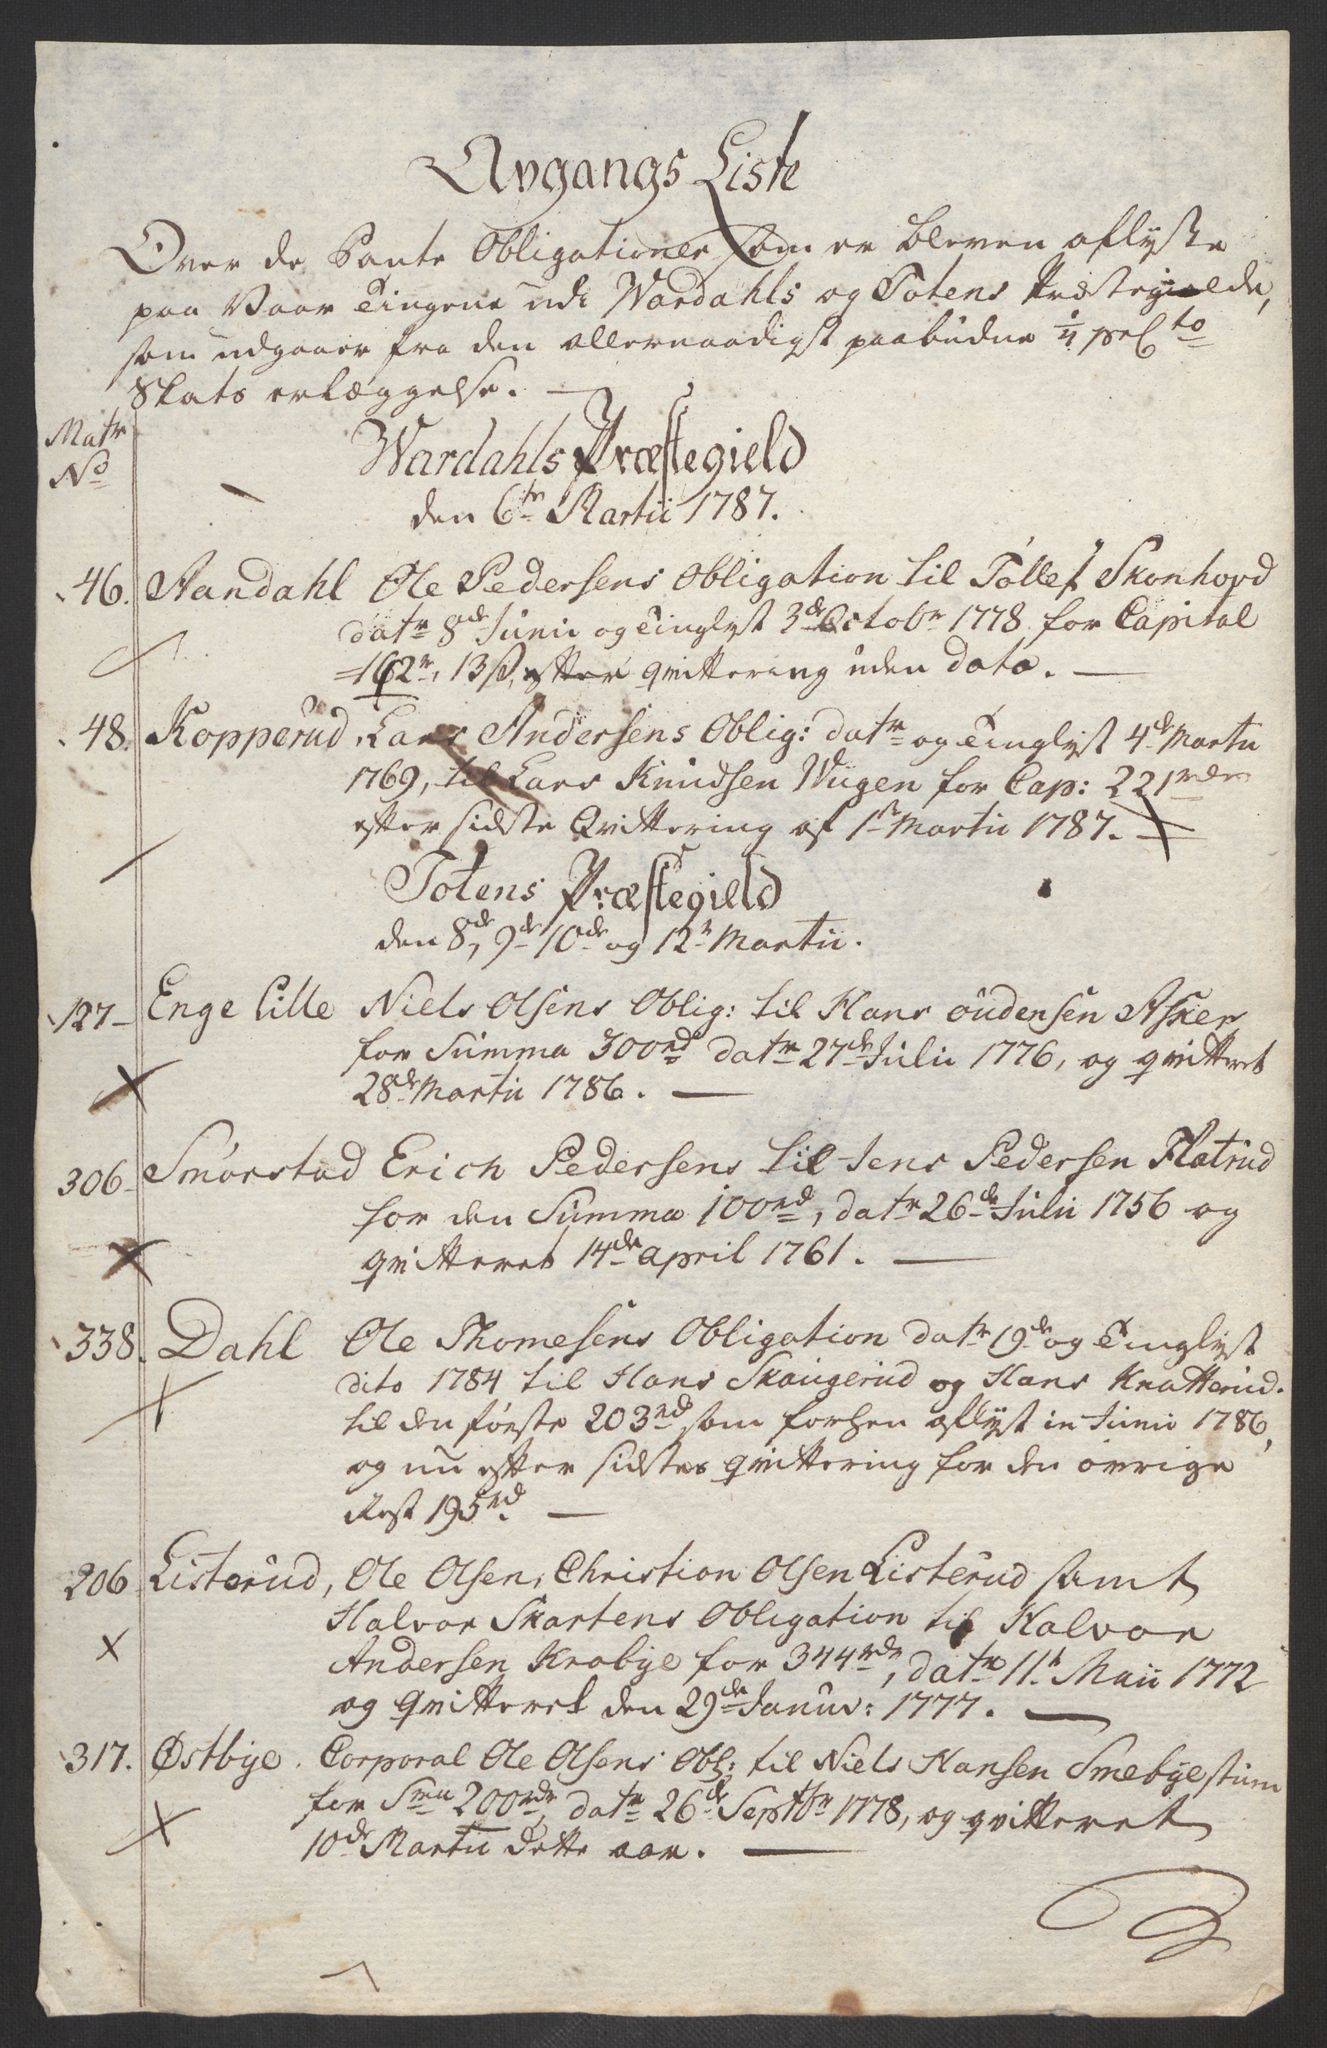 Avgangs Liste
Over de Pante Obligationer som er bleven aflyste
paa Vaar Tingene udi Wardahls og Totens Præstegielde,
som udgaaer fra den allernaadigst paabudne 1/4 prCto
Skats erlæggelse. —
Matr
No
Wardahls Præstegield
den 6te Martii 1787.
46. Aandahl Ole Pedersens Obligation til Tollef Skonhovd
datr 8de Junii og Tinglyst 3de Octobr 1778 for Capital
162 r, 13 s, efter qvittering uden dato. —
48. Kopperud, Lars Andersens Oblig: datr og Tinglyst 4de Martii
1769, til Lars Knudsen Wugen for Cap: 221 rdr
efter sidste Qvittering af 1ste Martii 1787. —
Totens Præstegield
den 8de, 9de 10de og 12te Martii.
127 - Enge Lille Niels Olsens Oblig: til Hans Oudensen Asker
for Summa 300 rd datr 27de Julii 1776, og qvitteret
28de Martii 1786. —
306 - Smørstad Erich Pedersens til Jens Pedersen Flatrud
for den Summa 100 rd, datr 26de Julii 1756 og
qvitteret 14de april 1761. —
338. Dahl Ole Thomesens Obligation datr 19de og Tinglyst
dito 1784 til Hans Skaugerud og Hans Knatterud.
til den første 203 rd, som forhen aflyst in Junii 1786,
og nu efter sidstes qvittering for den øvrige
Rest 195 rd. —
206 Listerud, Ole Olsen, Christian Olsen Listerud samt
Halvor Skartens Obligation til Halvor
Andersen Krabye for 344 rdr, datr 11te Maii 1772
og qvitteret den 29de Januar: 1777. —
317. Østbye. Corporal Ole Olsens Obl: til Niels Hansen Smebye
for Sma 200 rdr, datr 26de Septbr 1778, og qvitteret
10de Martii dette aar. —